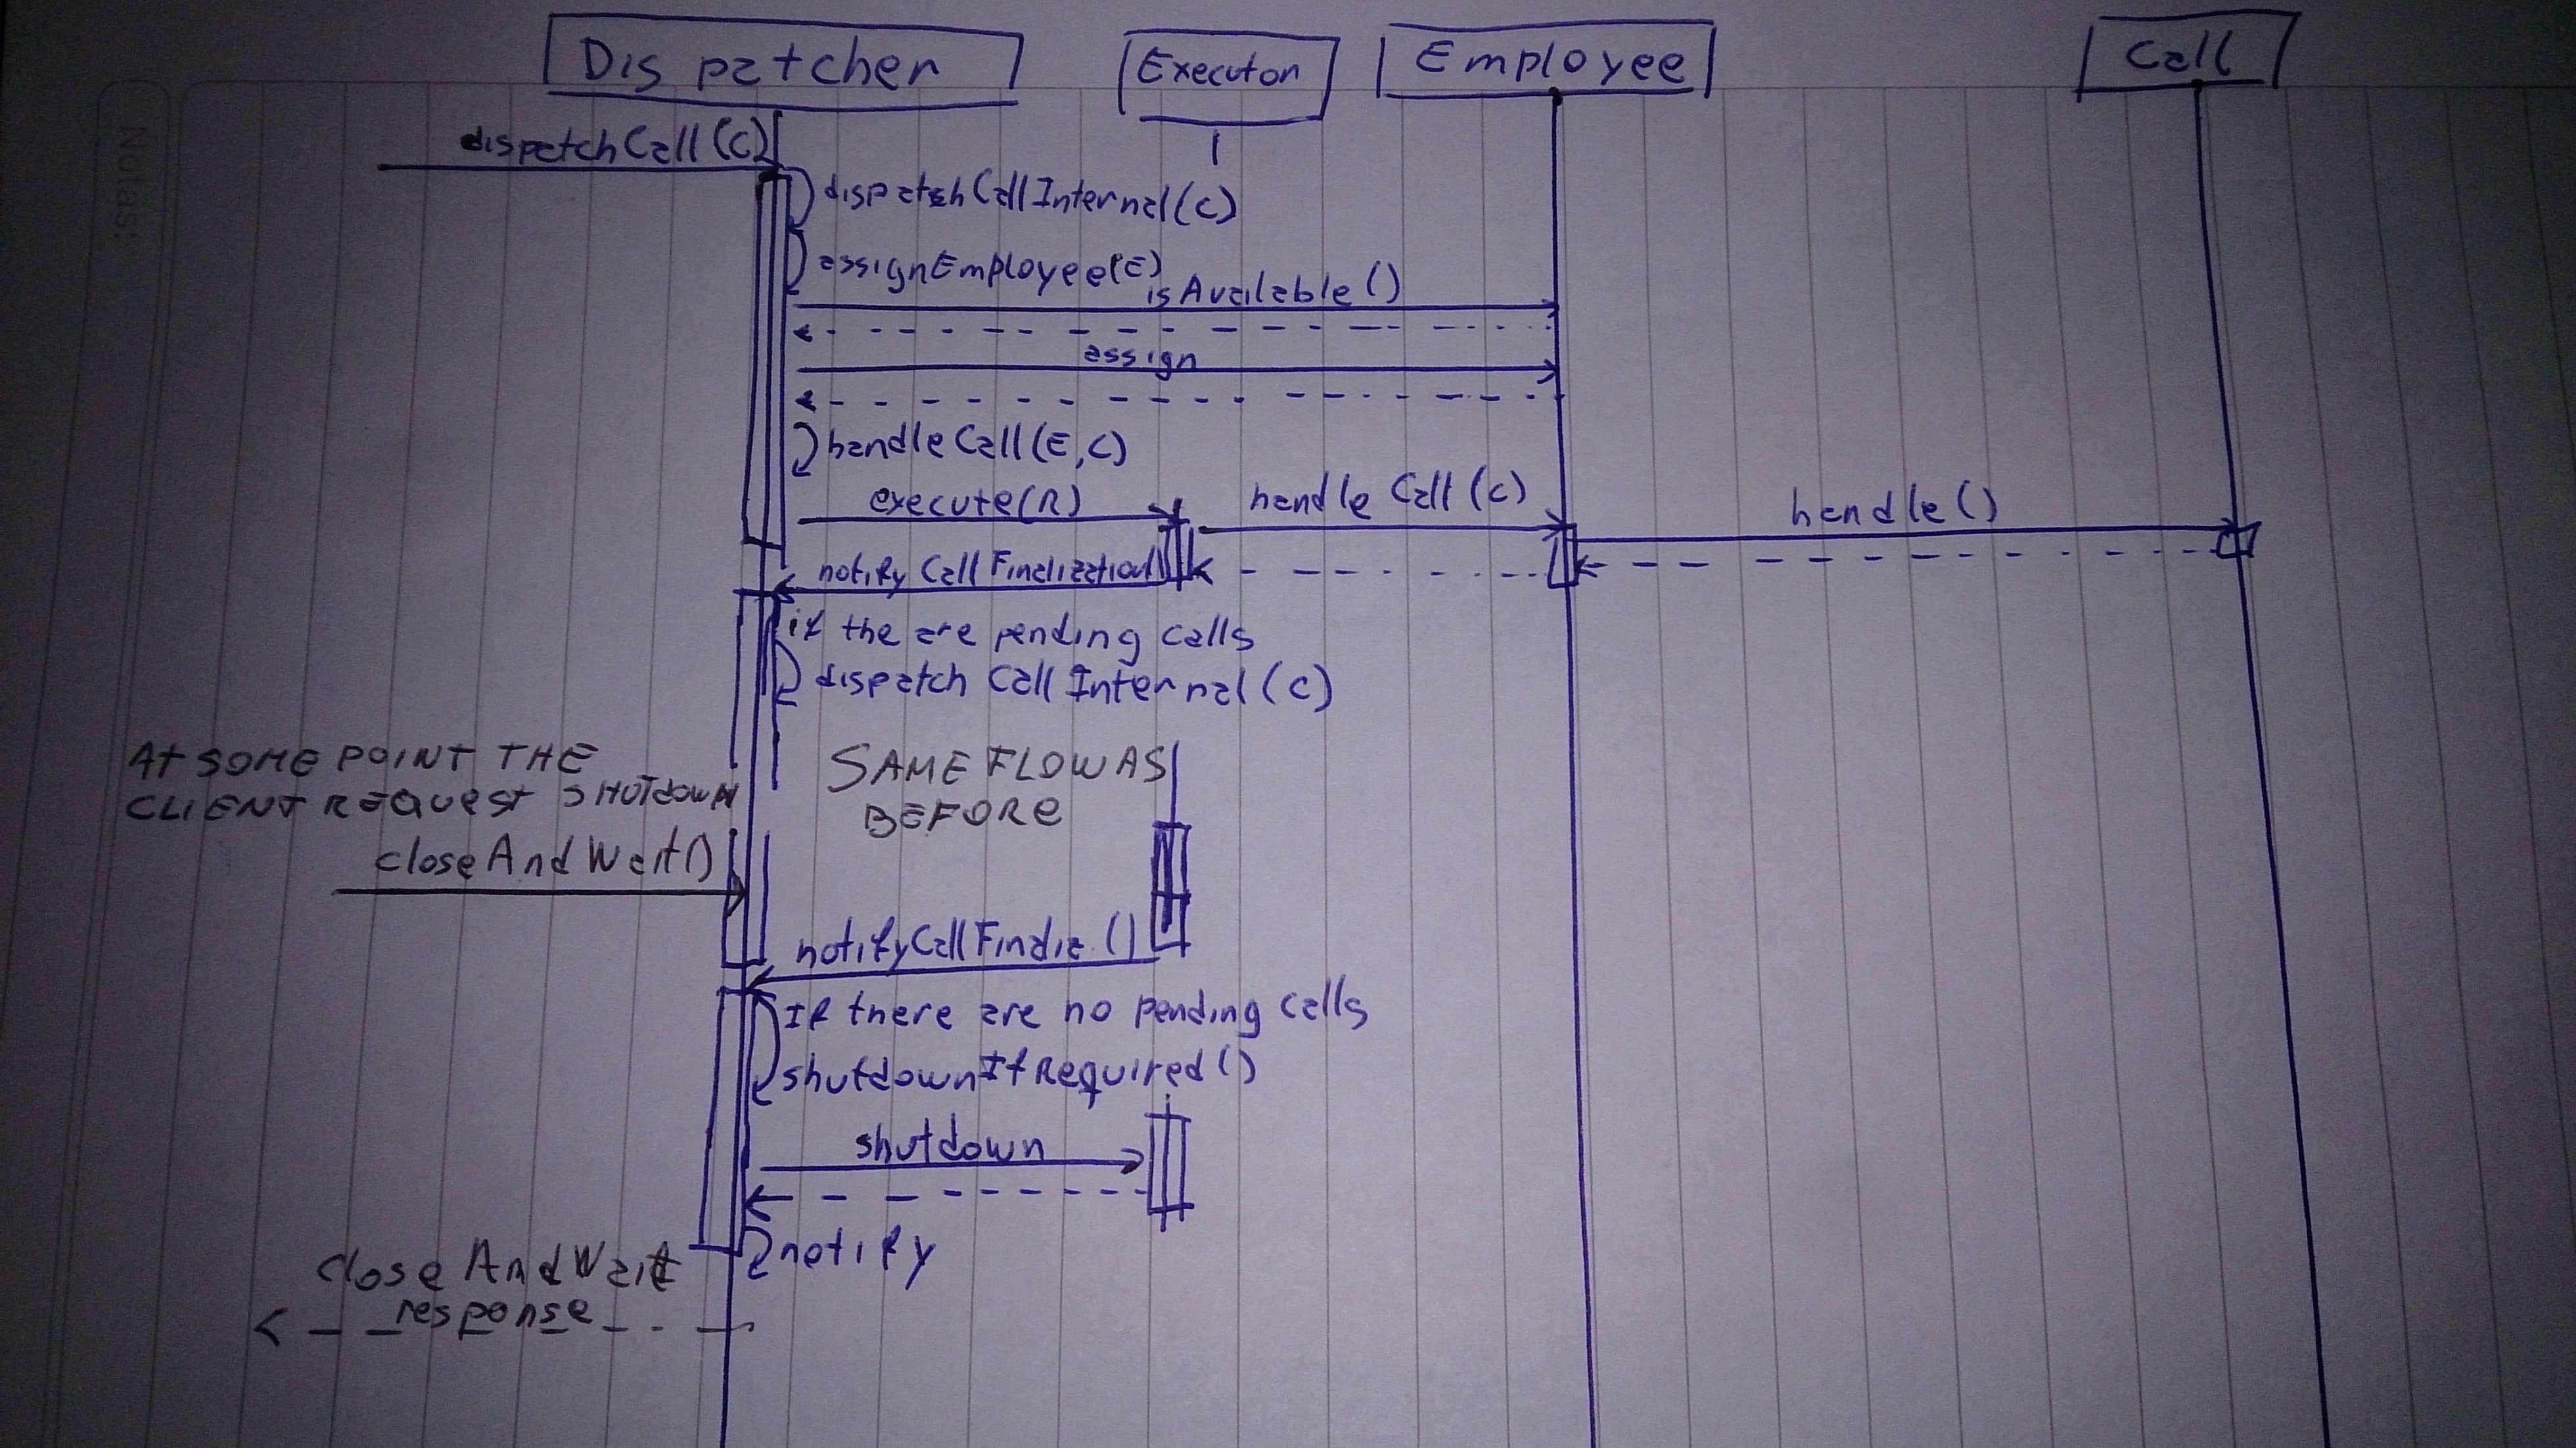 Dispatcher
Executor
Employee
Call
dispatchCall(c)
dispatchCallInternal(c)
assignEmployee(E)
isAvailable()
assign
handleCall(E,C)
execute(R)
handle Call(c)
handle()
notify Call Finalization()
if the are pending calls
dispatch Call Internal(c)
SAME FLOW AS
BEFORE
AT SOME POINT THE
CLIENT REQUEST SHUTDOWN
closeAndWait()
notifyCallFinaliz.()
If there are no pending calls
shutdownIfRequired()
shutdown
notify
close And Wait
response
Notas: